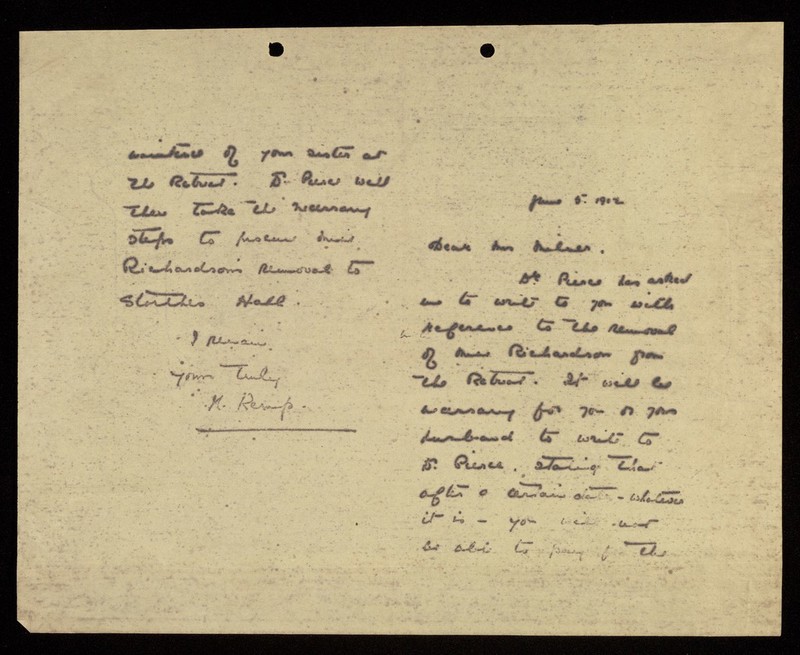 June 5. 1912
Dear Mrs Milner.
Dr. Pierce has asked
me to write to you with
reference to the removal
of Miss Richardson from
the Retreat. It will be
necessary for you or your
husband to write to
Dr. Pierce, stating that
after a certain date - whatever
it is - you will not
be able to pay for the
maintence of your sister at
the Retreat. Dr. Pierce will
then take the necessary
steps to procure Miss
Richardson's removal to
Storthes Hall.
I remain
Yours truly
N. Kemp.